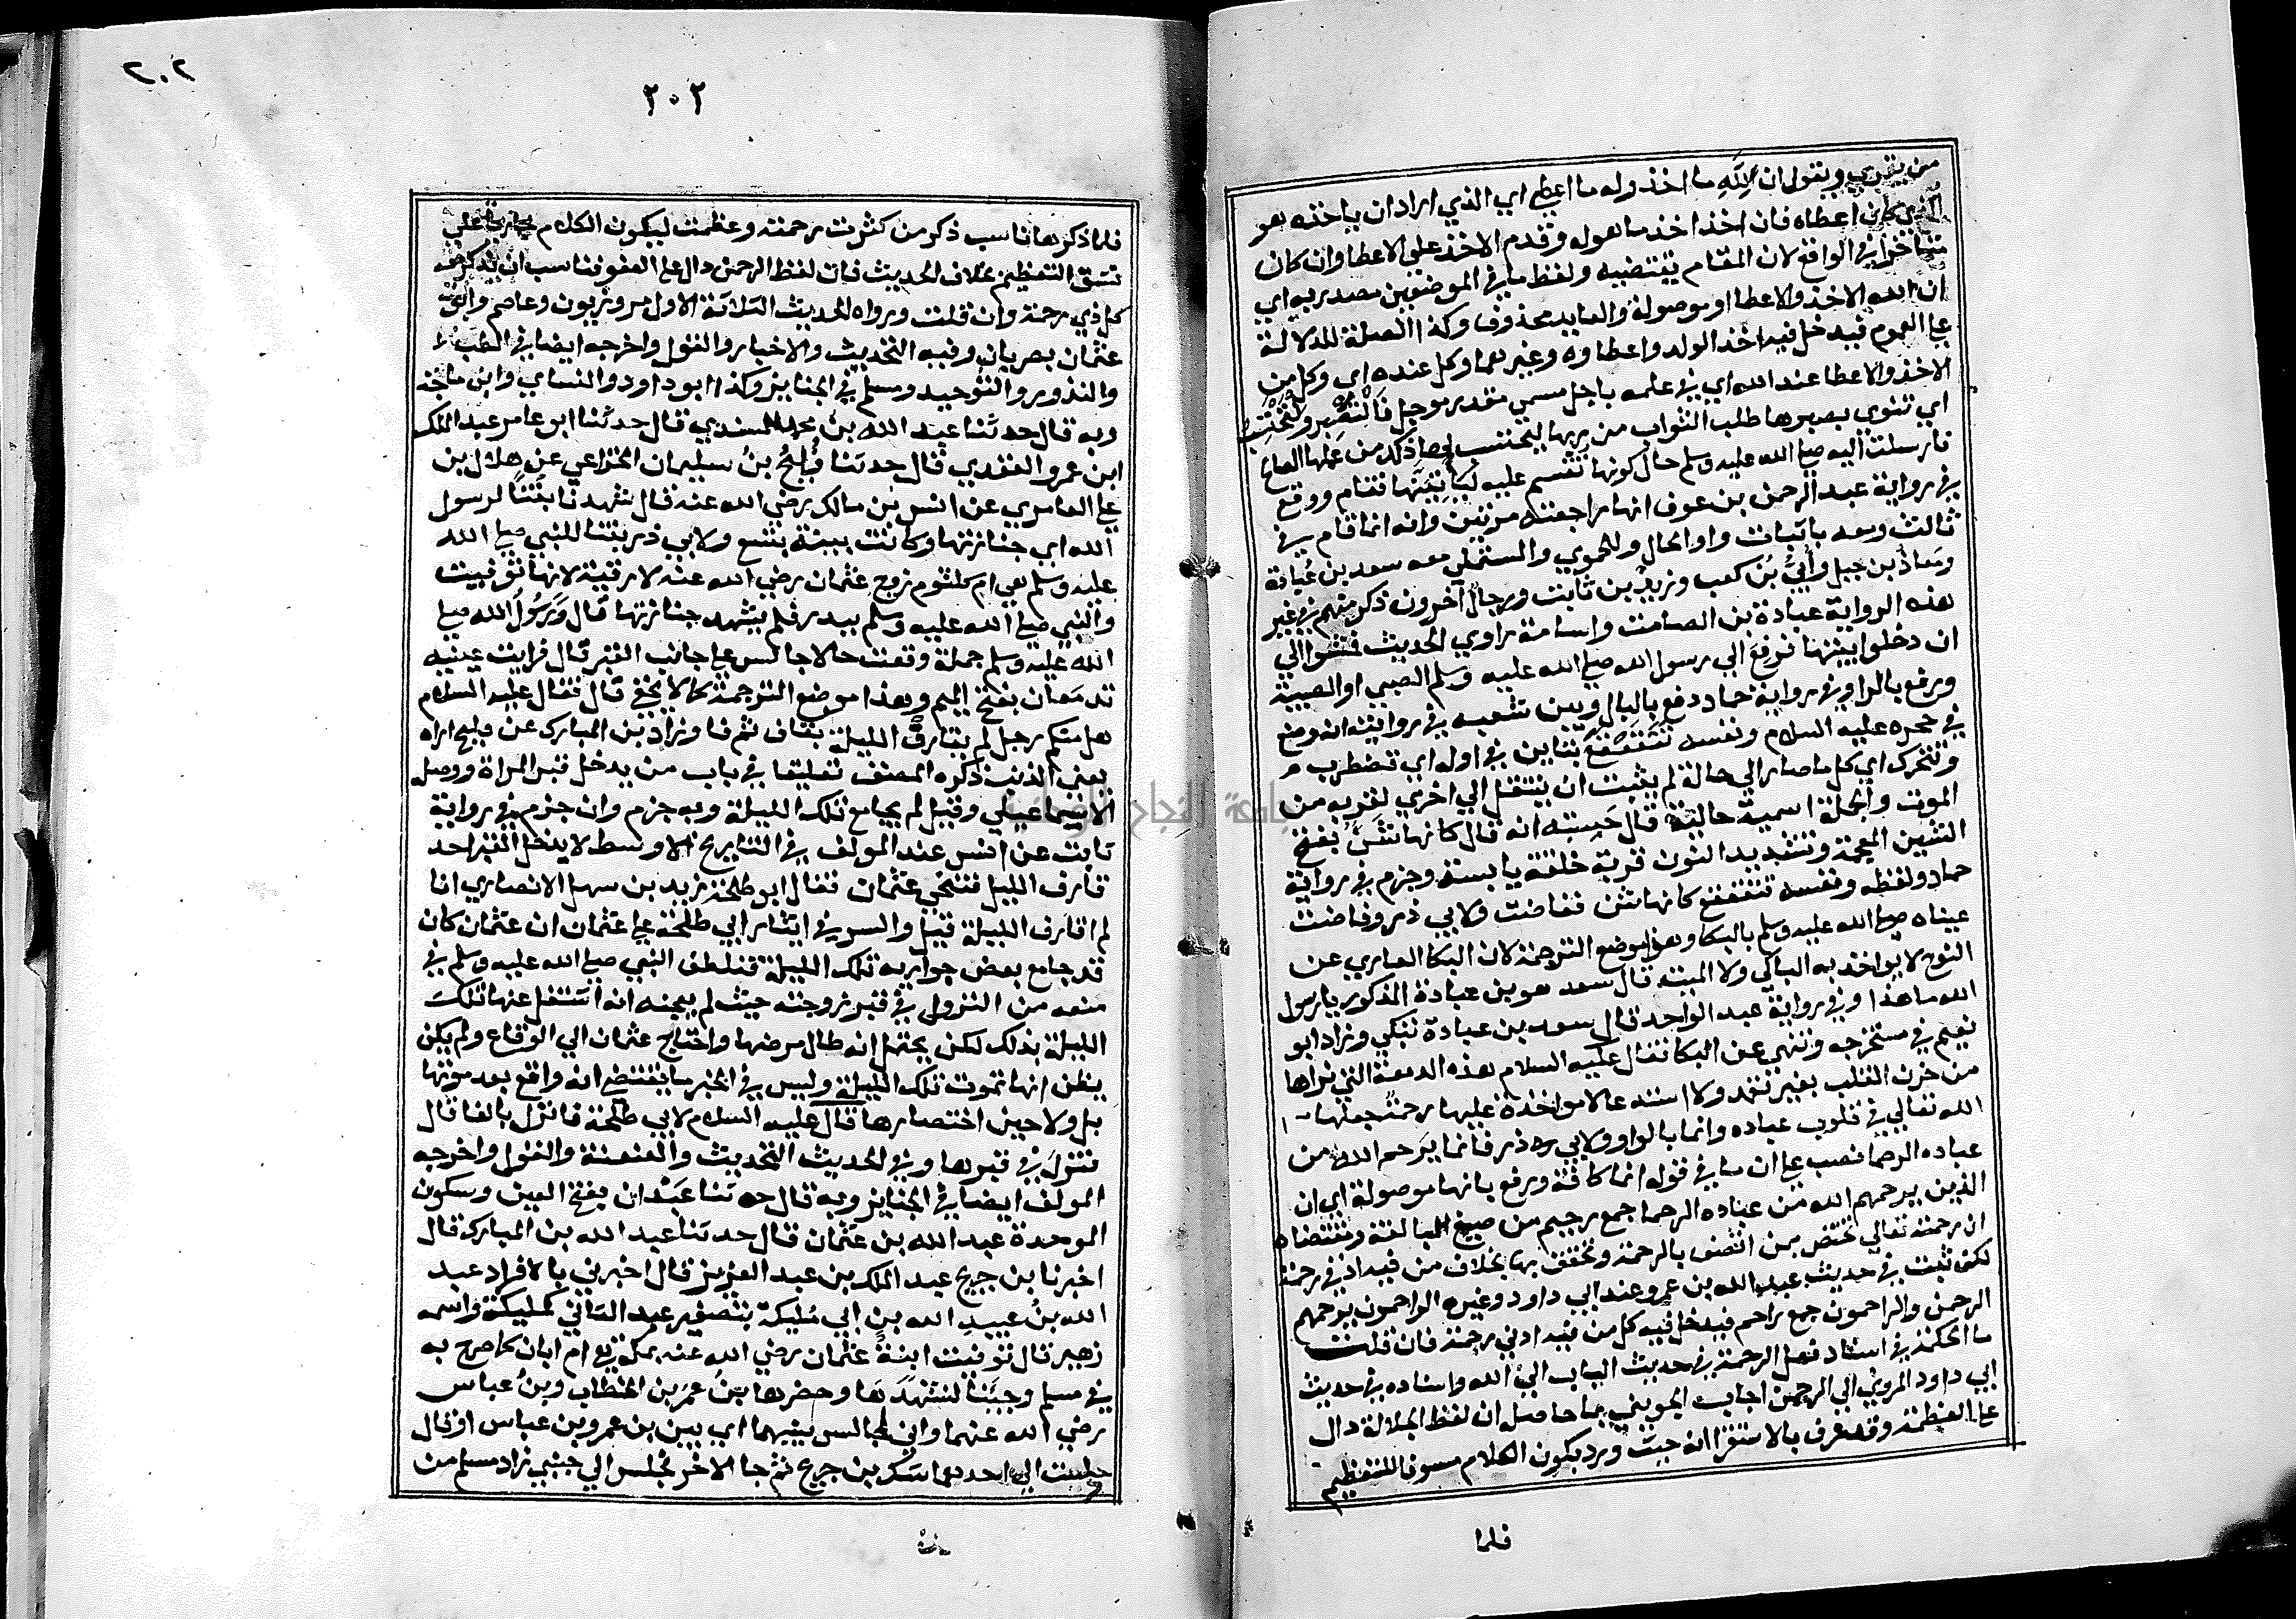 من يقري ويقول ان لله ما اخذ وله ما اعطى اي الذي اراد ان ياخذه هو
الذي كان اعطاه فان اخذ اخذ ما هوله وقدم الاخذ على الاعطا وان كان
متاخرا في الواقع لان المقام يقتضيه ولفظ ما في الموضعين مصدريه اي
ان لله الاخذ والاعطا او موصولة والعايد محذوف وكذا الصلة للدلالة
على العموم فيدخل فيه اخذ الولد واعطاوه وغيرهما وكل عنده اي وكل من
الاخذ والاعطا عند الله اي في علمه باجل مسمى مقدر موجل فلتصبر ولتحتسب
اي تنوي بصبرها طلب الثواب من ربها ليحتسب لها ذلك من عملها الصالح
فارسلت اليه صلى الله عليه وسلم حال كونها تقسم عليه ليأتينها فقام ووقع
في رواية عبد الرحمن بن عوف انها راجعته مرتين وانه انما قام في
ثالث ومعه باثبات واو الحال وللحموي والمستملي معه سعد بن عُبادة
ومَعاذُ بن جبل وأُبيُّ بنُ كعب وزيدُ بن ثابت ورجالٌ آخرون ذكر منهم في غير
هذه الرواية عبادة بن الصامت واسامة راوي الحديث فمشوا الي
ان دخلوا بيتها فرفع الي رسول الله صلى الله عليه وسلم الصبي او الصبية
ورفع بالرا وفي رواية حماد دفع بالدال وبين شعبه في روايته انه وضع
في حجره عليه السلام ونفسه تَتَقَعْقَعُ بتاين في اوله اي تضطرب
وتتحرك اي كل ما صار الي حالة لم يثبت ان ينتقل الي اخري لقربه من
الموت والجملة اسمية حالية قال حَسِبته انه قال كانها شَنٌّ بفتح
الشين المعجمة وتشديد النون قربة خلقة يابسة وجزم في رواية
حماد ولفظه ونفسه تتقعقع كانها شن ففاضت ولابي ذر وفاضت
عيناه صلى الله عليه وسلم بالبكا وهذا موضع الترجمة لان البكا العاري عن
النوح لا يواخذ به الباكي ولا الميت قال سعد هو بن عبادة المذكور يا رسول
الله ما هذا وفي رواية عبد الواحد قال سعد بن عبادة تبكي وزاد ابو
نعيم في مستخرجه وتنهي عن البكا فقال عليه السلام هذه الدمعة التي تراها
من حزن القلب بغير تعمد ولا استدعا لا مواخذة عليها رحمة جعلها
الله تعالي في قلوب عباده وانما بالواو ولابي ذر فانما يَرحم الله من
عباده الرحما نصب على ان ما في قوله انما كافة ورفع بانها موصولة اي ان
الذين يرحمهم الله من عباده الرحما جمع رحيم من صيغ المبالغة ومقتضاه
ان رحمته تعالي تختص بمن اتصف بالرحمة وتحقق بها بخلاف من فيه ادني رحمة
لكن ثبت في حديث عبد الله بن عمرو عند ابي داود وغيره الراحمون يرحمهم
الرحمن والراحمون جمع راحم فيدخل فيه كل من فيه ادني رحمة فان قلت
ما الحكمة في اسناد فعل الرحمة في حديث الباب الي الله واسناده في حديث
ابي داود المروي الي الرحمن اجاب الخويني بما حاصله ان لفظ الجلالة دال
على العظمة وقد عرف بالاستقرا انه حيث ورد يكون الكلام مسوقا للتعظيم
فلما
٢٠٢
٢٠٢
فلما ذكرها ناسب ذكر من كثرت رحمته وعظمت ليكون الكلام جاريا علي
نسق التعظيم بخلاف الحديث فان لفظ الرحمن دال على العفو فناسب ان يذكر معه
كل ذي رحمة وان قلت ورواه الحديث الثلاثة الاول مروزيون وعاصم وابو
عثمان بصريان وفيه التحديث والاخبار والقول واخرجه ايضا في الطب
والنذور والتوحيد ومسلم في الجنايز وكذا ابو داود والنساي وابن ماجة
وبه قال حدثنا عبد الله بن محمد المسندي قال حدثنا ابو عامر عبد الملك
ابن عمرو العقدي قال حدثنا فُليحُ بنُ سليمان الخزاعي عن هلال بن
علي العامري عن انس بن مالك رضي الله عنه قال شهدنا بنتًا لرسول
الله اي جنازتها وكانت سنة تسع ولابي ذر بنتا للنبي صلى الله
عليه وسلم هي ام كلثوم زوج عثمان رضي الله عنه لا رقية لانها توفيت
والنبي صلى الله عليه وسلم ببدر فلم يشهد جنازتها قال ورَسُولُ الله صلى
الله عليه وسلم جملة وقعت حالا جالس على جانب القبر قال فرايت عينيه
تدمَعان بفتح الميم وهذا موضع الترجمة كما لا يخفى قال فقال عليه السلام
هل منكم رجل لم يقارف الليلة بقاف ثم فا وزاد بن المبارك عن فليح اراه
يعني الذنب ذكره المصنف تعليقا في باب من يدخل قبر المراة ووصله
الاسماعيلي وقيل لم يجامع تلك الليلة وبه جزم وان جزم في رواية
ثابت عن انس عند المولف في التاريخ الاوسط لا يدخل القبر احد
قارف الليل فتنحي عثمان فقال ابو طلحة زيد بن سهل الانصاري انا
لم اقارف الليلة قيل والسر في ايثار ابي طلحة على عثمان ان عثمان كان
قد جامع بعض جواريه تلك الليلة فتلطف النبي صلى الله عليه وسلم في
منعه من النزول في قبر زوجته حيث لم يعجبه انه اشتغل عنها تلك
الليلة بذلك لكن يحتمل انه طال مرضها واحتاج عثمان الي الوقاع ولم يكن
يظن انها تموت تلك الليلة وليس في الخبر ما يقتضي انه واقع بعد موتها
بل ولا حين احتضارها قال عليه السلام لابي طلحة فانزل بالفا قال
فنزل في قبرها وفي الحديث التحديث والعنعنة والقول واخرجه
المولف ايضا في الجنايز وبه قال حدثنا عَبْدان بفتح العين وسكون
الموحدة عبد الله بن عثمان قال حدثنا عبد الله بن المبارك قال
اخبرنا بن جريج عبد الملك بن عبد العزيز قال اخبرني بالافراد عبد
الله بنُ عبيدِ الله بنِ ابي مُليكة بتصغير عبد الثاني كمليكة واسمه
زهير قال توفيت ابنةٌ عثمان رضي الله عنه بمكة هي ام ابان كما صرح به
في مسلم وجئنا لنشهدَها وحضرها بنُ عمرَ بن الخطاب وبنُ عباس
رضي الله عنهما واني لجالس بينهما اي بين بن عمر وبن عباس او قال
جلست الي احدهما شك بن جريج ثم جا الاخر فجلس الي جنبي زاد مسلم من